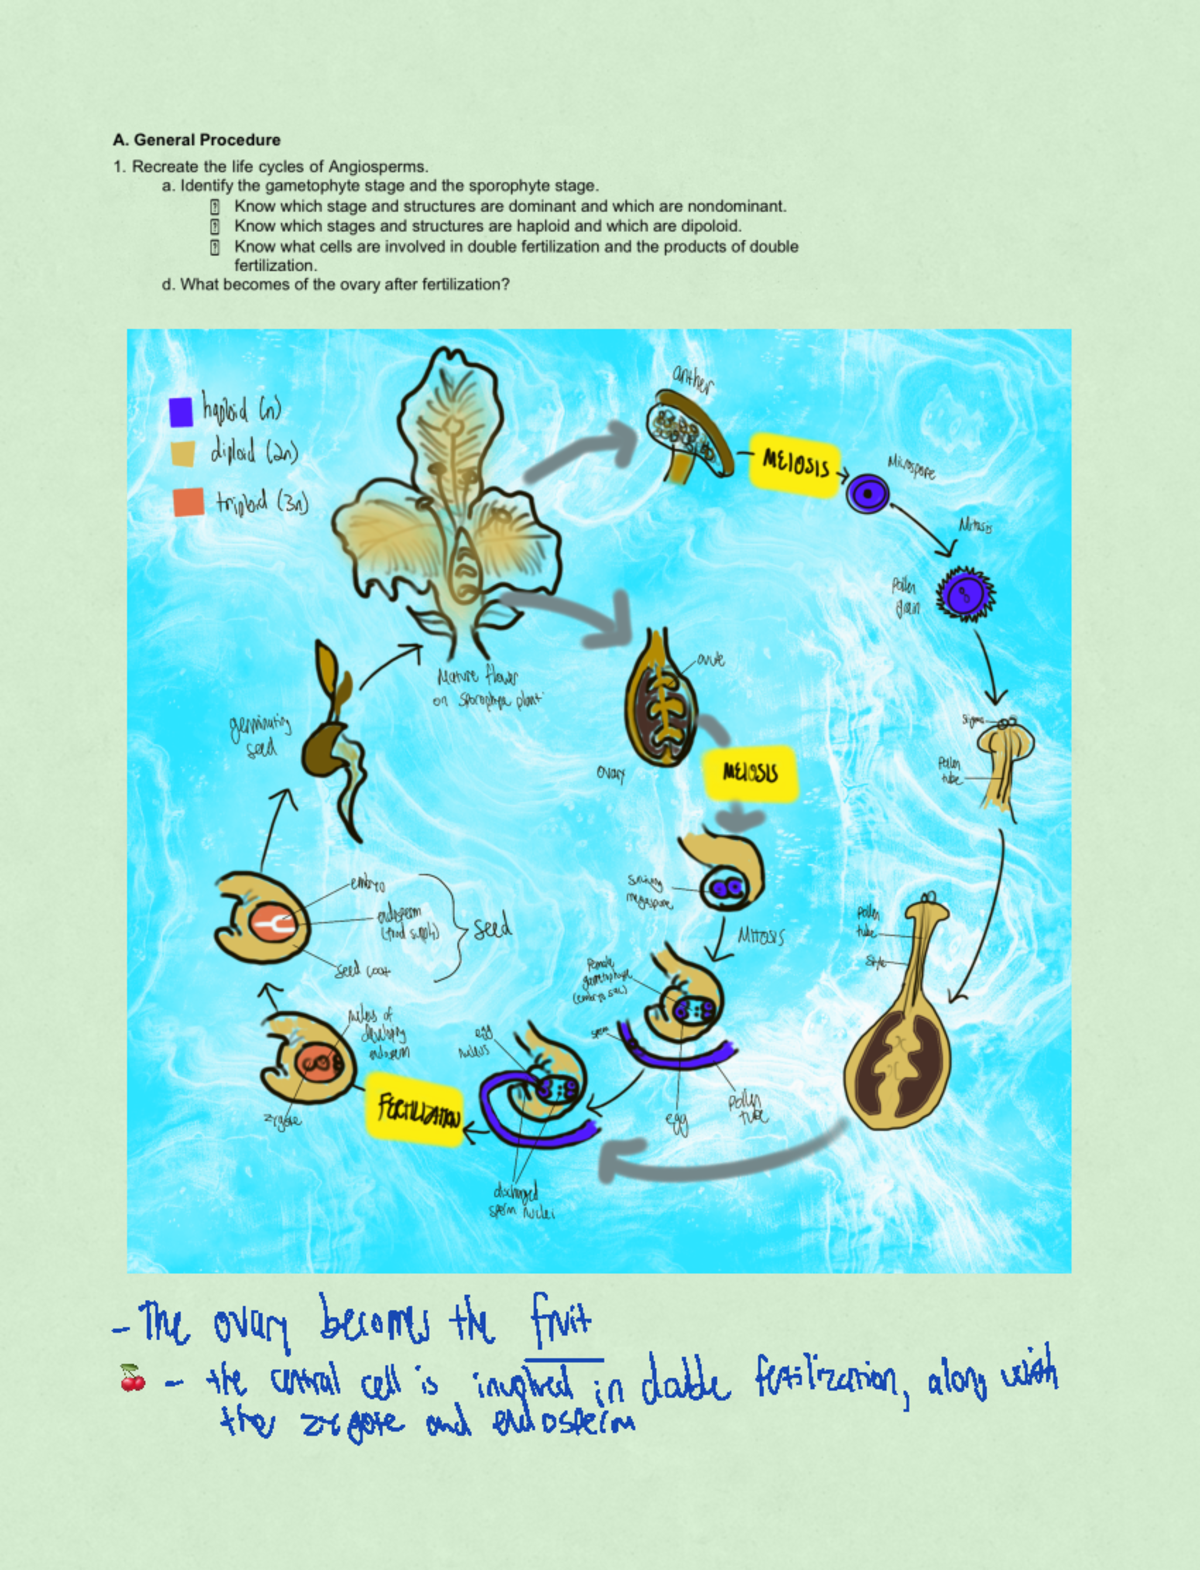 A. General Procedure
1. Recreate the life cycles of Angiosperms.
a. Identify the gametophyte stage and the sporophyte stage.
Know which stage and structures are dominant and which are nondominant.
Know which stages and structures are haploid and which are dipoloid.
Know what cells are involved in double fertilization and the products of double
fertilization.
d. What becomes of the ovary after fertilization?
haploid (n)
diploid (2n)
triploid (3n)
anther
MEIOSIS
Microspore
Mitosis
Pollen
grain
Mature flower
on sporophyte plant
ovule
ovary
MEIOSIS
germinating
seed
stigma
Pollen
tube
embryo
endosperm
(food supply)
seed coat
seed
surviving
megaspore
MITOSIS
Female
gametophyte
(embryo sac)
sperm
egg
Pollen
tube
Pollen
tube
style
egg
nucleus
discharged
sperm nuclei
FERTILIZATION
nucleus of
developing
endosperm
zygote
- The ovary becomes the fruit
- the central cell is involved in double fertilization, along with
the zygote and endosperm